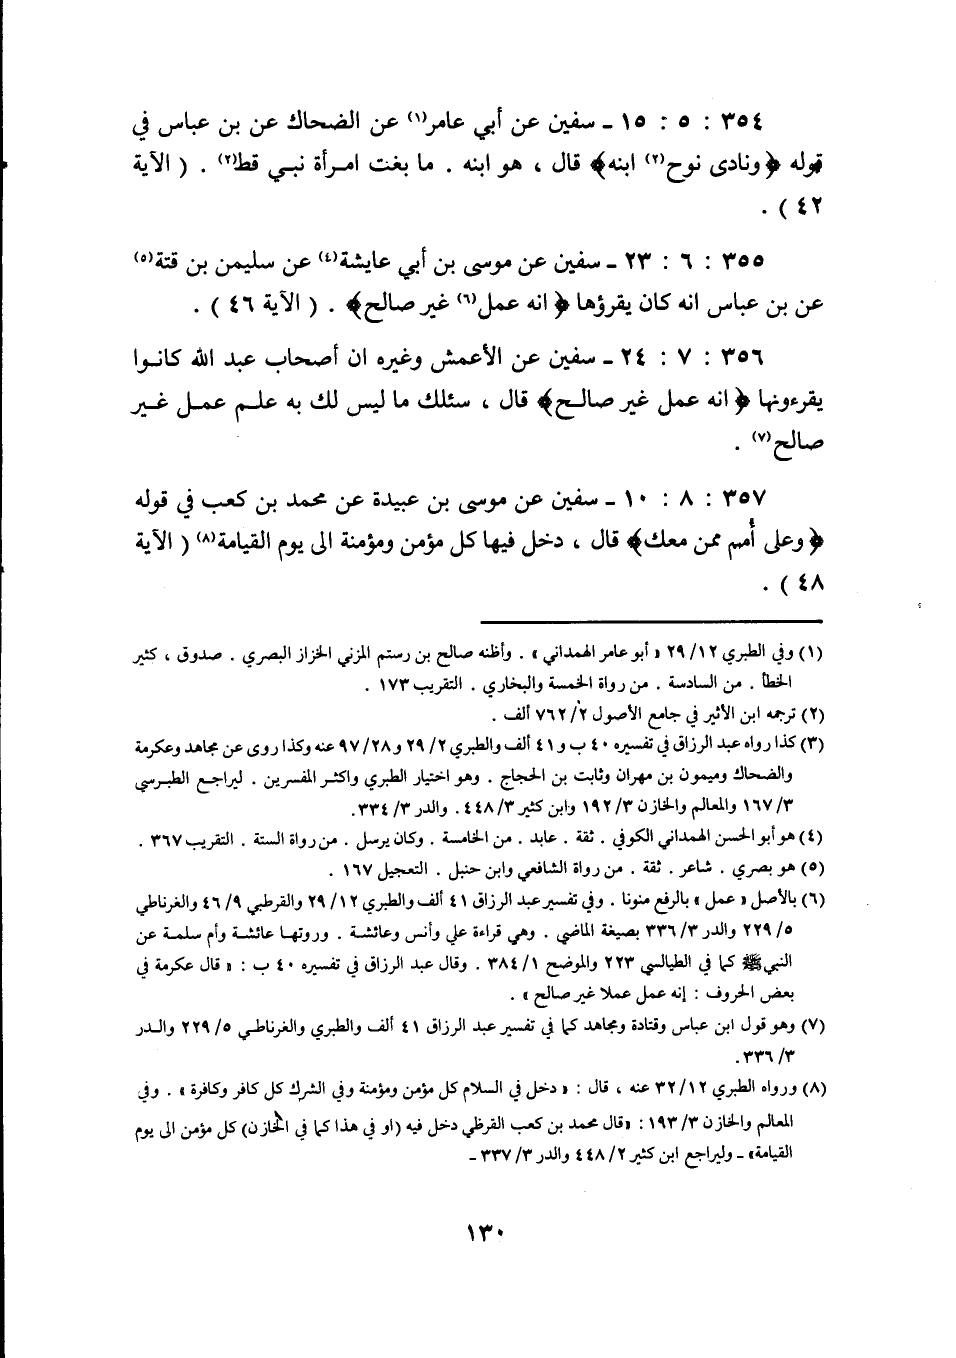 ٣٥٤ : ٥ : ١٥ ـ سفين عن أبي عامر(١) عن الضحاك عن بن عباس في
قوله ﴿ ونادى نوح(٢) ابنه﴾ قال ، هو ابنه . ما بغت امرأة نبي قط(٣) . ( الآية
٤٢ ) .
٣٥٥ : ٦ : ٢٣ ـ سفين عن موسى بن أبي عايشة(٤) عن سليمن بن قتة(٥)
عن بن عباس انه كان يقرؤها ﴿ انه عمل(٦) غير صالح﴾ . ( الآية ٤٦ ) .
٣٥٦ : ٧ : ٢٤ ـ سفين عن الأعمش وغيره ان أصحاب عبد الله كانوا
يقرءونها ﴿ انه عمل غير صالح﴾ قال ، سئلك ما ليس لك به علم عمل غير
صالح(٧) .
٣٥٧ : ٨ : ١٠ ـ سفين عن موسى بن عبيدة عن محمد بن كعب في قوله
﴿ وعلى أُمم ممن معك﴾ قال ، دخل فيها كل مؤمن ومؤمنة الى يوم القيامة(٨) ( الآية
٤٨ ) .
(١) وفي الطبري ١٢/ ٢٩ « أبو عامر الهمداني » . وأظنه صالح بن رستم المزني الخزاز البصري . صدوق ، كثير
الخطأ . من السادسة . من رواة الخمسة والبخاري . التقريب ١٧٣ .
(٢) ترجمه ابن الأثير في جامع الأصول ٢/ ٧٦٢ ألف .
(٣) كذا رواه عبد الرزاق في تفسيره ٤٠ ب و٤١ ألف والطبري ٢/ ٢٩ و٢٨/ ٩٧ عنه وكذا روى عن مجاهد وعكرمة
والضحاك وميمون بن مهران وثابت بن الحجاج . وهو اختيار الطبري واكثر المفسرين . ليراجع الطبرسي
٣/ ١٦٧ والمعالم والخازن ٣/ ١٩٢ وابن كثير ٣/ ٤٤٨. والدر ٣/ ٣٣٤.
(٤) هو أبو الحسن الهمداني الكوفي . ثقة . عابد . من الخامسة . وكان يرسل . من رواة الستة . التقريب ٣٦٧ .
(٥) هو بصري . شاعر . ثقة . من رواة الشافعي وابن حنبل . التعجيل ١٦٧ .
(٦) بالأصل « عمل » بالرفع منونا . وفي تفسير عبد الرزاق ٤١ ألف والطبري ١٢/ ٢٩ والقرطبي ٩/ ٤٦ والغرناطي
٥/ ٢٢٩ والدر ٣/ ٣٣٦ بصيغة الماضي . وهي قراءة علي وأنس وعائشة . وروتها عائشة وأم سلمة عن
النبي ﷺ كما في الطيالسي ٢٢٣ والموضح ١/ ٣٨٤ . وقال عبد الرزاق في تفسيره ٤٠ ب : « قال عكرمة في
بعض الحروف : إنه عمل عملا غير صالح » .
(٧) وهو قول ابن عباس وقتادة ومجاهد كما في تفسير عبد الرزاق ٤١ ألف والطبري والغرناطي ٥/ ٢٢٩ والدر
٣/ ٣٣٦.
(٨) ورواه الطبري ١٢/ ٣٢ عنه ، قال : « دخل في السلام كل مؤمن ومؤمنة وفي الشرك كل كافر وكافرة » . وفي
المعالم والخازن ٣/ ١٩٣ : «قال محمد بن كعب القرظي دخل فيه (او في هذا كما في الخازن) كل مؤمن الى يوم
القيامة» ـ وليراجع ابن كثير ٢/ ٤٤٨ والدر ٣/ ٣٣٧ ـ
١٣٠